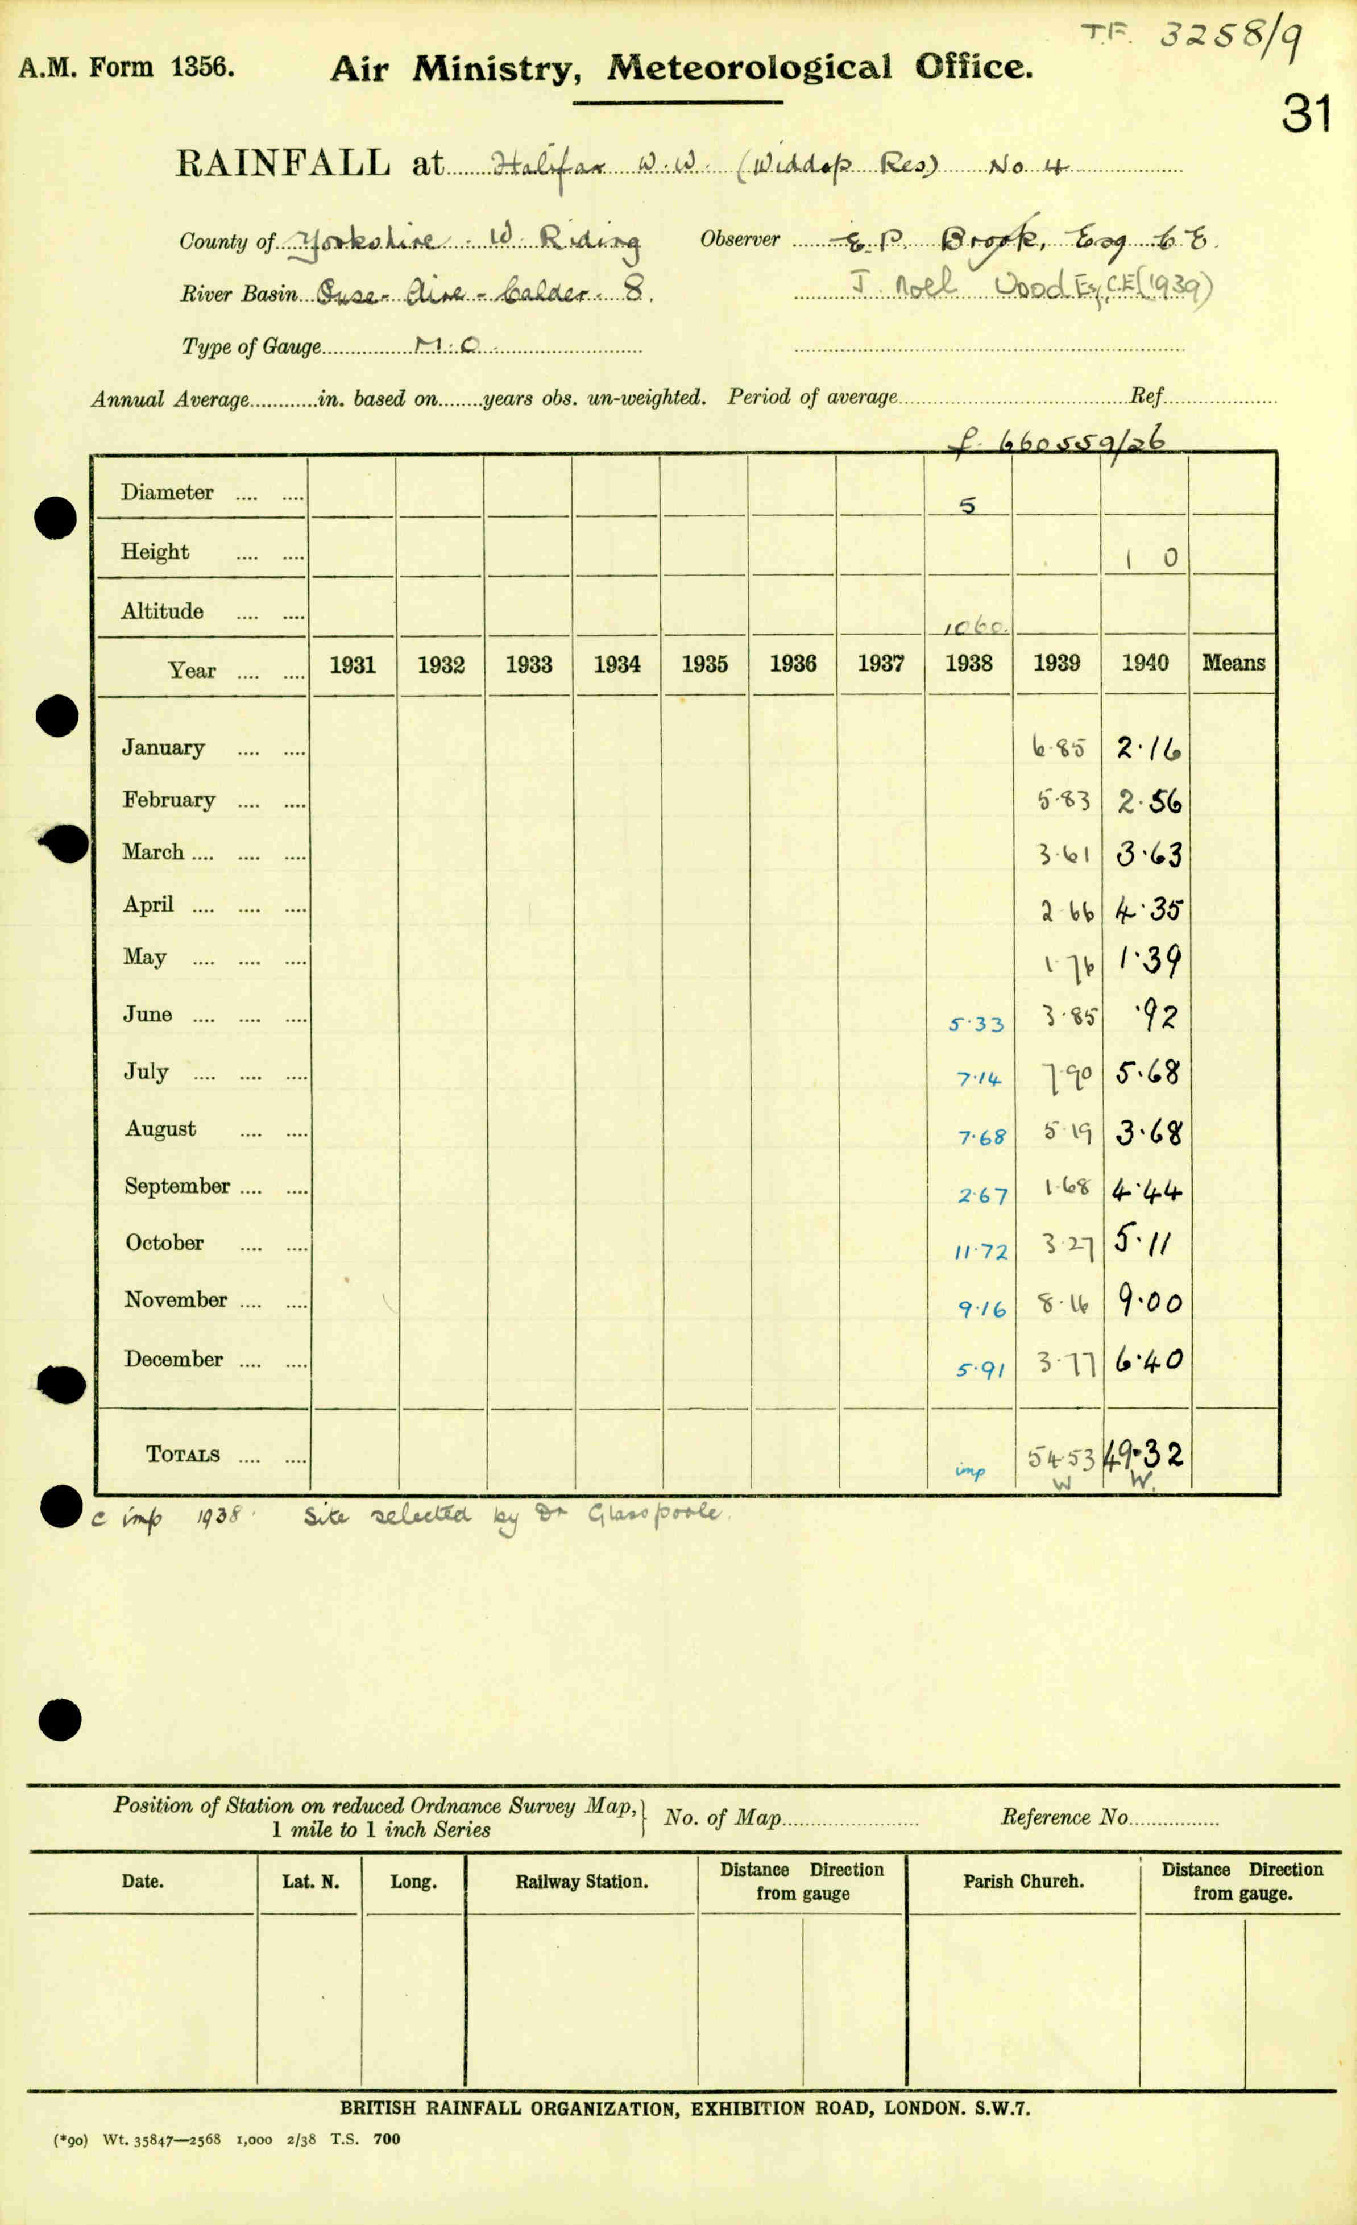 T.F. 3258/9
A.M. Form 1356. Air Ministry, Meteorological Office.
31
RAINFALL at Halifax W.W. (Widdop Res) No 4
County of Yorkshire - W. Riding Observer E.P. Brook, Esq C E.
River Basin Ouse - Aire - Calder - 8. J. Noel Wood Esq, C.E (1939)
Type of Gauge M.O.
Annual Average in. based on years obs. un-weighted. Period of average Ref.
f. 660559/26
Diameter .... .... 5
Height .... .... 1 0
Altitude .... .... 1060.
Year .... .... 1931 1932 1933 1934 1935 1936 1937 1938 1939 1940 Means
January .... .... 6.85 2.16
February .... .... 5.83 2.56
March .... .... .... 3.61 3.63
April .... .... .... 2.66 4.35
May .... .... .... 1.76 1.39
June .... .... .... 5.33 3.85 .92
July .... .... .... 7.14 7.90 5.68
August .... .... 7.68 5.19 3.68
September .... .... 2.67 1.68 4.44
October .... .... 11.72 3.27 5.11
November .... .... 9.16 8.16 9.00
December .... .... 5.91 3.77 6.40
TOTALS .... .... imp 54.53 49.32
W W.
c imp 1938. Site selected by Dr Glasspoole.
Position of Station on reduced Ordnance Survey Map, 1 mile to 1 inch Series No. of Map Reference No.
Date. Lat. N. Long. Railway Station. Distance Direction from gauge Parish Church. Distance Direction from gauge.
BRITISH RAINFALL ORGANIZATION, EXHIBITION ROAD, LONDON. S.W.7.
(*90) Wt. 35847—2568 1,000 2/38 T.S. 700